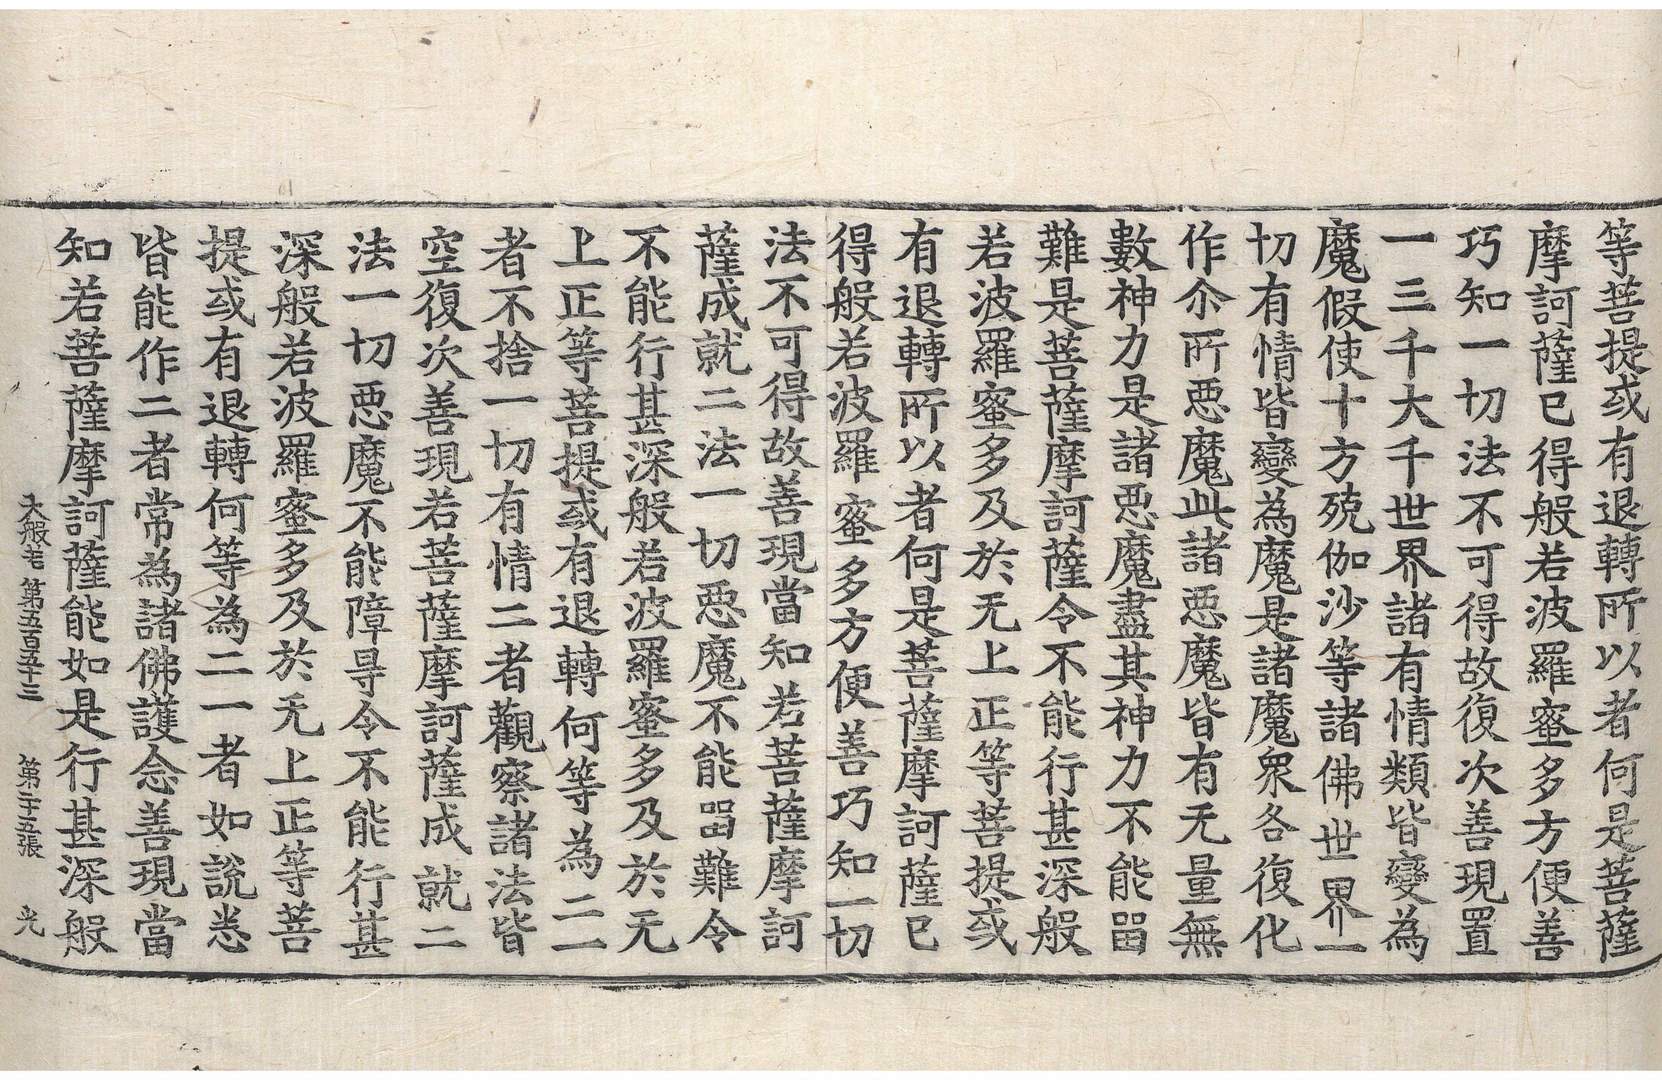 等菩提或有退轉所以者何是菩薩
摩訶薩已得般若波羅蜜多方便善
巧知一切法不可得故復次善現置
一三千大千世界諸有情類皆變為
魔假使十方殑伽沙等諸佛世界一
切有情皆變為魔是諸魔眾各復化
作尒所惡魔此諸惡魔皆有无量無
數神力是諸惡魔盡其神力不能畱
難是菩薩摩訶薩令不能行甚深般
若波羅蜜多及於无上正等菩提或
有退轉所以者何是菩薩摩訶薩已
得般若波羅蜜多方便善巧知一切
法不可得故善現當知若菩薩摩訶
薩成就二法一切惡魔不能畱難令
不能行甚深般若波羅蜜多及於无
上正等菩提或有退轉何等為二一
者不捨一切有情二者觀察諸法皆
空復次善現若菩薩摩訶薩成就二
法一切惡魔不能障㝵令不能行甚
深般若波羅蜜多及於无上正等菩
提或有退轉何等為二一者如說悉
皆能作二者常為諸佛護念善現當
知若菩薩摩訶薩能如是行甚深般
大般若 第五百五十三 第二十五張 光